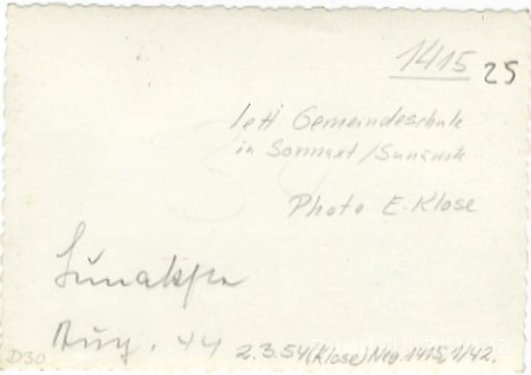 1415 25
lett Gemeindeschule
in Sonnaxt / Sunakste
Photo E. Klose
Sunakste
Aug. 44 2.3.54 (Klose) Neg. 1415, 1/42.
D30